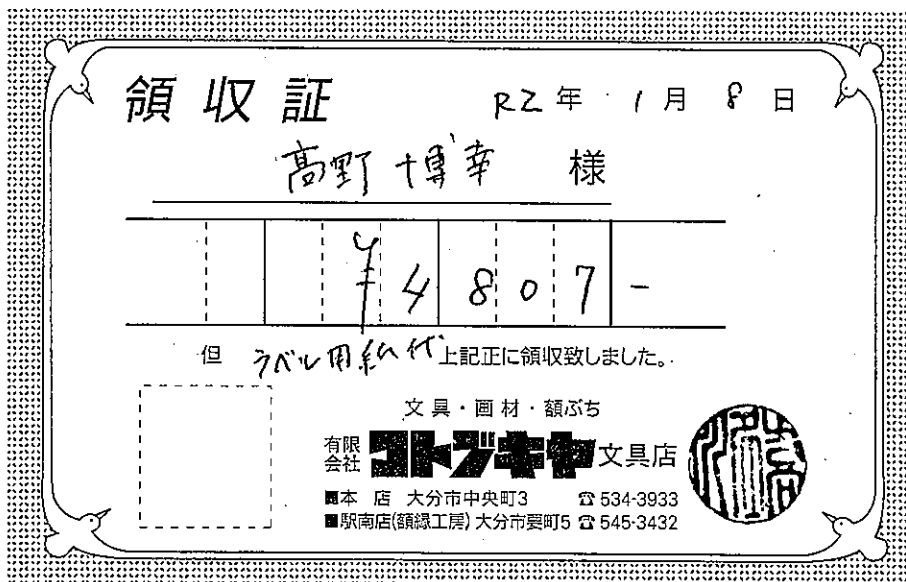 領収証 R2年 1月 8日
高野博幸 様
¥4807-
但 ラベル用紙代 上記正に領収致しました。
文具・画材・額ぶち
有限会社 コトブキヤ 文具店
■本 店 大分市中央町3 ☎534-3933
■駅南店(額縁工房) 大分市要町5 ☎545-3432